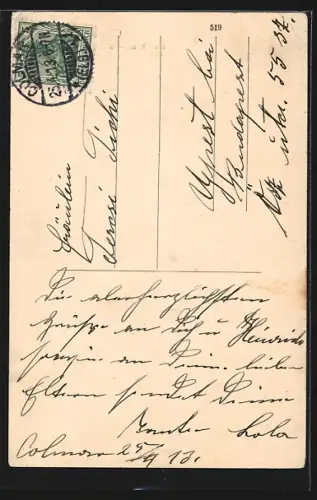 519
Fräulein
Teresi Tichi
Ujpest bei
Budapest
utca. 55 sz.
Die allerherzlichsten
Grüsse an Dich u Heinrich
sowie an Deine lieben
Eltern sendet Deine
Tante Lola
Colmar 25/9 13.
COLMAR